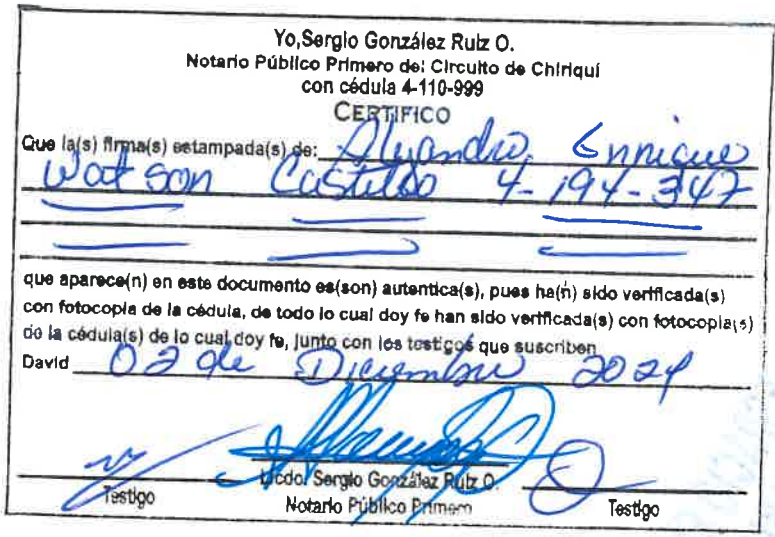 Yo, Sergio González Ruiz O.
Notario Público Primero del Circuito de Chiriquí
con cédula 4-110-999
CERTIFICO
Que la(s) firma(s) estampada(s) de: Alejandro Enrique
Watson Castillo 4-194-347
que aparece(n) en este documento es(son) autentica(s), pues ha(n) sido verificada(s)
con fotocopia de la cédula, de todo lo cual doy fe han sido verificada(s) con fotocopia(s)
de la cédula(s) de lo cual doy fe, junto con los testigos que suscriben
David 02 de Diciembre 2024
Testigo Licdo. Sergio González Ruiz O. Testigo
Notario Público Primero